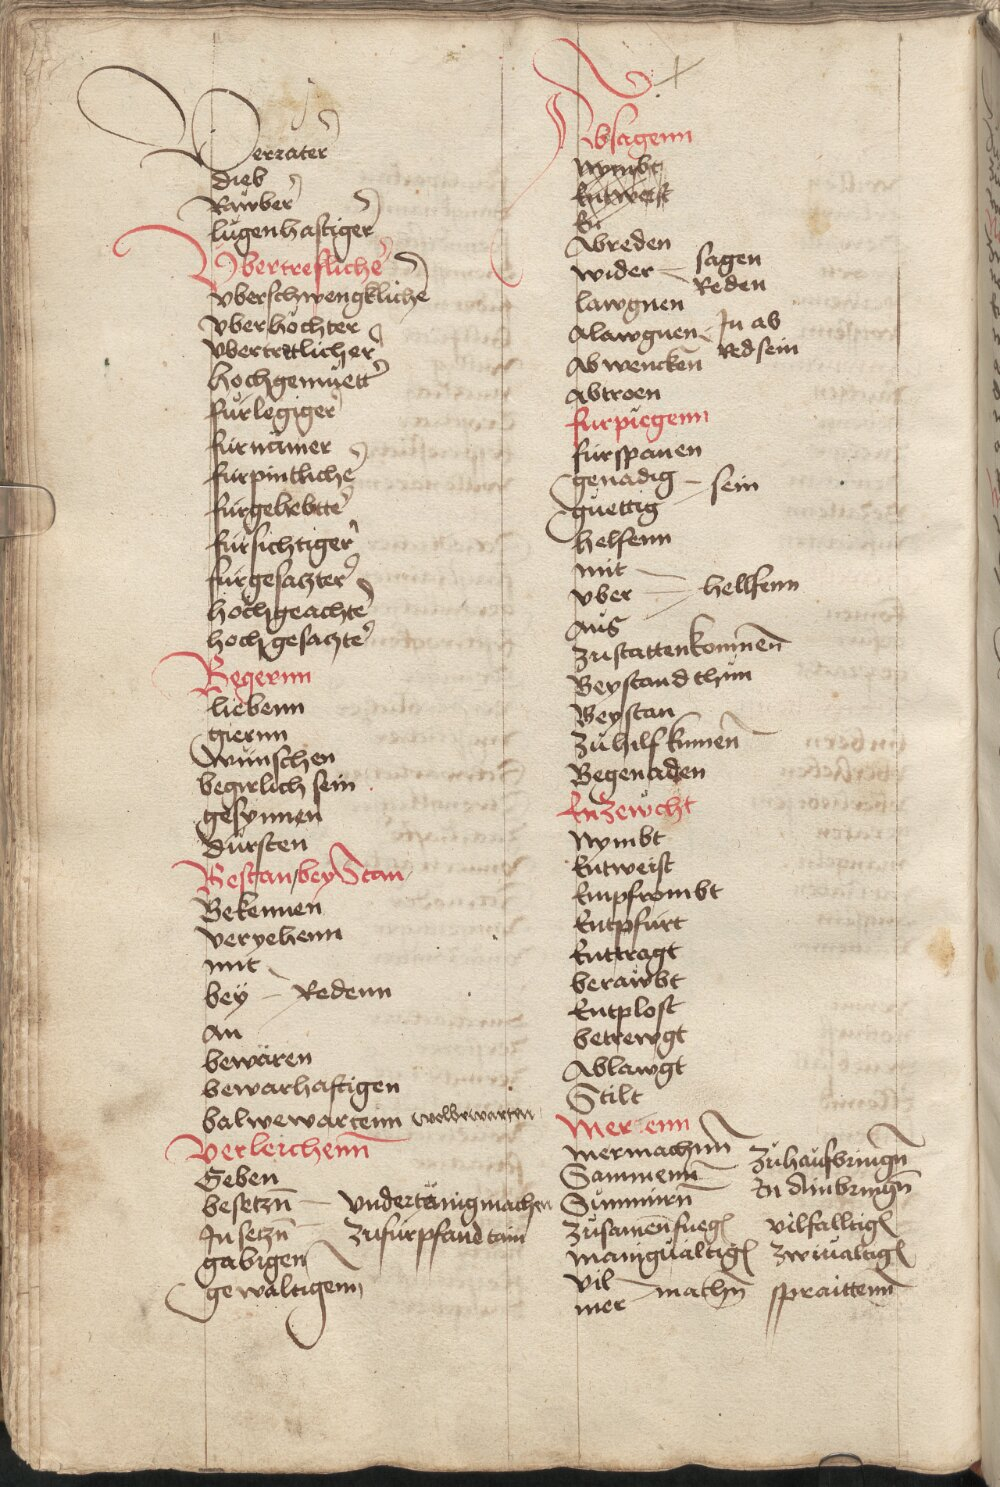 Verrater
dieb
Rawber
lugenhaftiger
Vbertrefliche
vberschwengkliche
vberhochter
vbertretlicher
hochgemuett
furlegiger
furnämer
furpintliche
furgehebtte
fursichtiger
furgesatzter
hochgeachte
hochgesatzte
Begernn
liebenn
giernn
wunschen
begirlich sein
gesynnen
dursten
Bestan / bey Stan
Bekennen
veryehenn
mit
bey – Redenn
An
bewären
bewarhaftigen
balwewartenn wolbewarten
verleichenn
Geben
besetzn̄ – vndertänig machen
In setzn̄ zu furpfand tain
gabigen
gewaltigenn
A
Absagenn
Nymbt
Entweist
En
Abreden
wider – sagen
Reden
lawgnen
Alawgnen – In ab
Red sein
Abwencken̄
abtroen
furpiegenn
furspanen
genadig – sein
guettig
helfenn
mit
vber – hellfenn
Aus
zustattenkommen̄
Beystand thun
Beystan
zuhilf kumen̄
Begenaden
Enzewcht
Nymbt
Entweist
Empfrombt
Entpfurt
Enttragt
berawbt
Entplost
betrewgt
Ablawgt
Stilt
Merenn
mermachnn̄ zuhaufbringn̄
Sammenn̄ In ainbringn̄
Summirn̄
zusamenfueg vilfalltig
manigualtig zwiualtig
vil – machn̄ spraittenn̄
mer